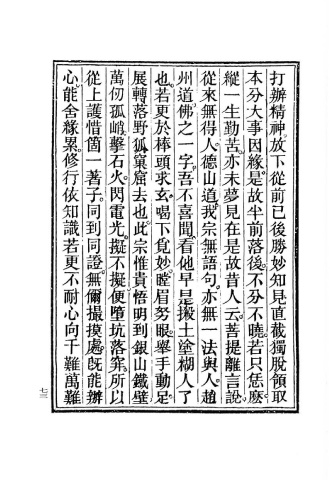 打辦精神放下從前已後勝妙知見直截獨脫領取
本分大事因緣是故半前落後不分不曉若只恁麽
縱一生勤苦亦未夢見在是故昔人云菩提離言說
從來無得人德山道我宗無語句亦無一法與人趙
州道佛之一字吾不喜聞看他早是搬土塗糊人了
也若更於棒頭求玄喝下覓妙瞠眉努眼舉手動足
展轉落野狐窠窟去也此宗惟貴悟明到銀山鐵壁
萬仞孤峭擊石火閃電光擬不擬便墮坑落穽所以
從上護惜箇一著子同到同證無爾撮摸處旣能辦
心能舍緣累修行依知識若更不耐心向千難萬難
七三